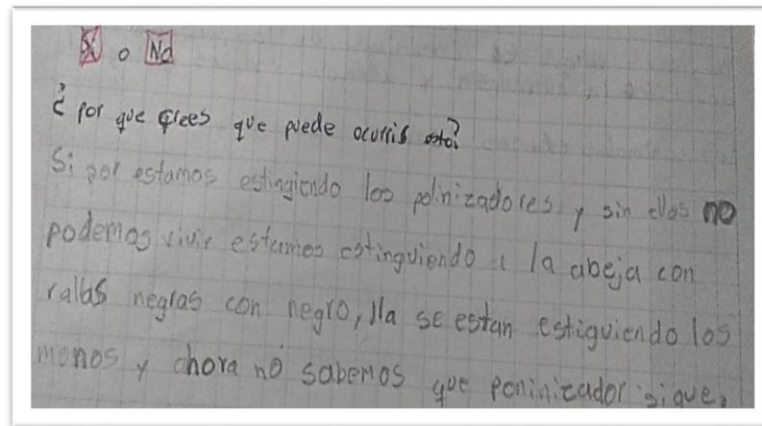 Si o No
¿por que crees que puede ocurris esto?
Si por estamos estingiendo los polinizadores y sin ellos no
podemos vivir estamos estinguiendo a la abeja con
rallas negras con negro, lla se estan estiguiendo los
monos y ahora no sabemos que poninizador sigue,